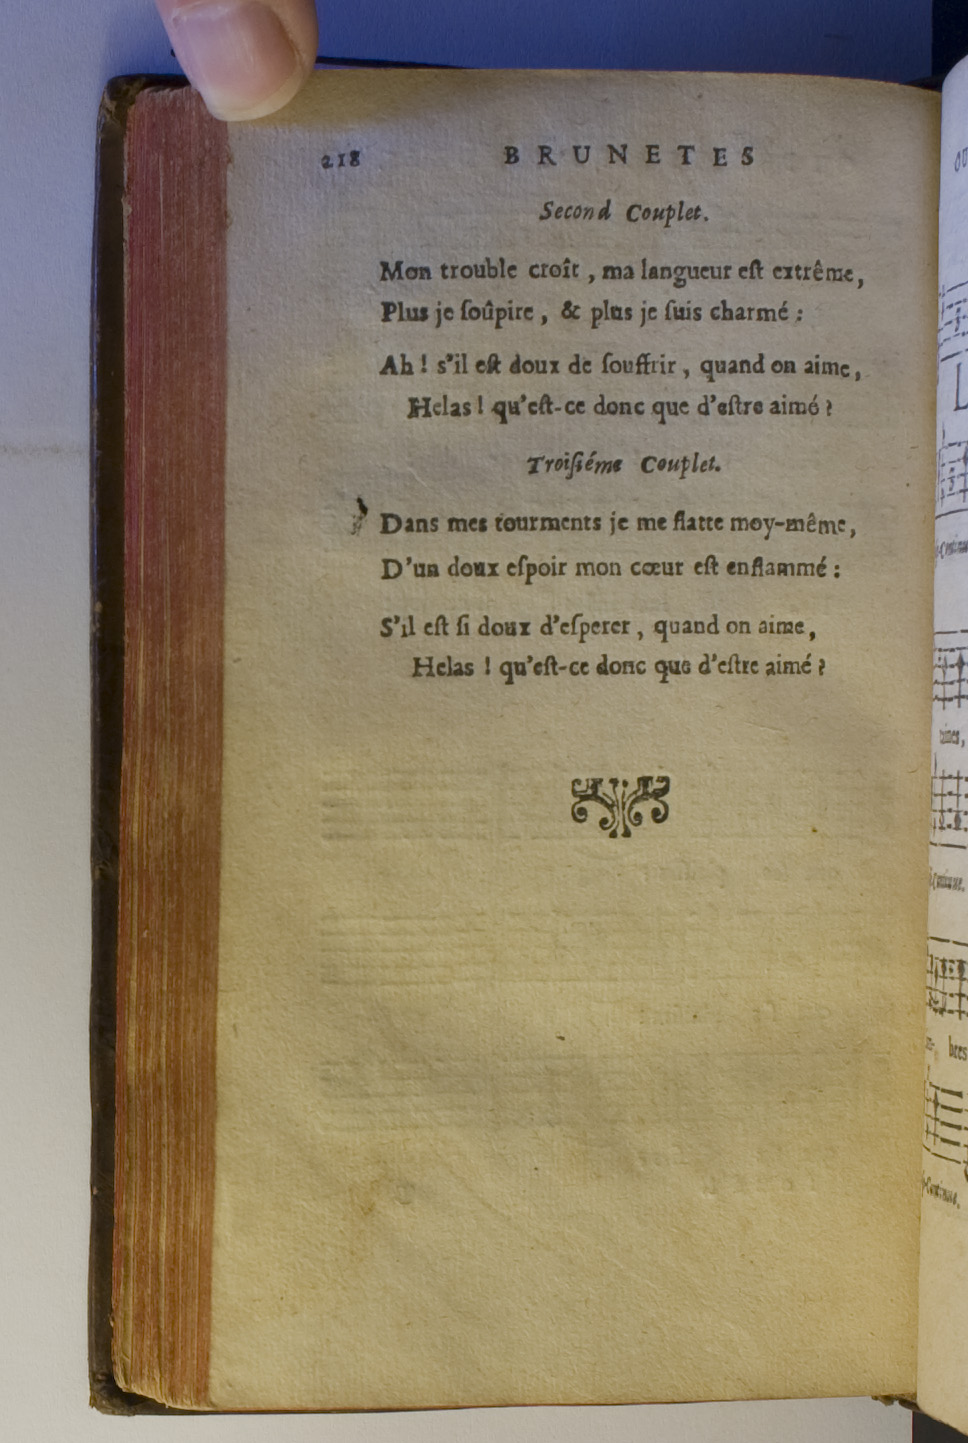 218 BRUNETES
Second Couplet.
Mon trouble croît, ma langueur eſt extrême,
Plus je ſoûpire, & plus je ſuis charmé :
Ah ! s'il eſt doux de ſouffrir, quand on aime,
Helas ! qu'eſt-ce donc que d'eſtre aimé ?
Troiſiéme Couplet.
Dans mes tourments je me flatte moy-même,
D'un doux eſpoir mon cœur eſt enflammé :
S'il eſt ſi doux d'eſperer, quand on aime,
Helas ! qu'eſt-ce donc que d'eſtre aimé ?